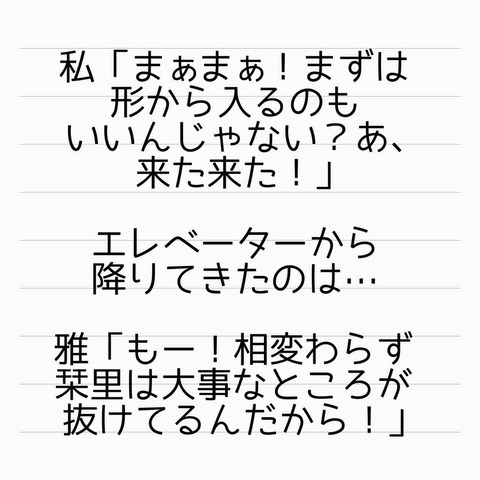 私「まぁまぁ！まずは
形から入るのも
いいんじゃない？あ、
来た来た！」
エレベーターから
降りてきたのは…
雅「もー！相変わらず
栞里は大事なところが
抜けてるんだから！」